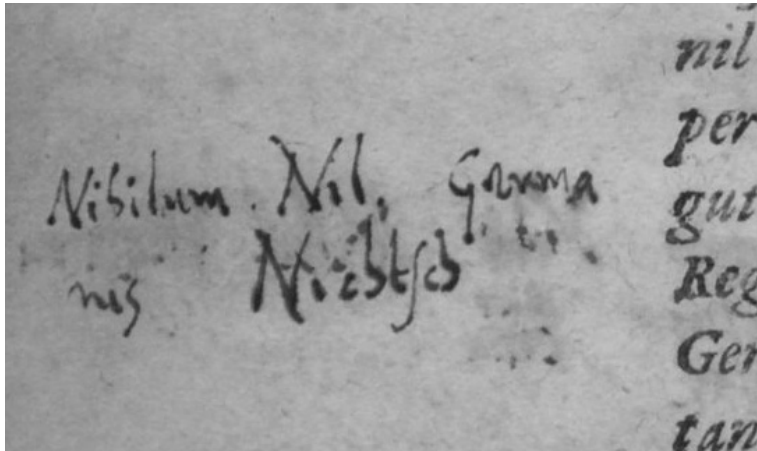 Nihilum. Nil. Germa
nis Nichtsch
nil
per
gut
Reg
Ger
tan